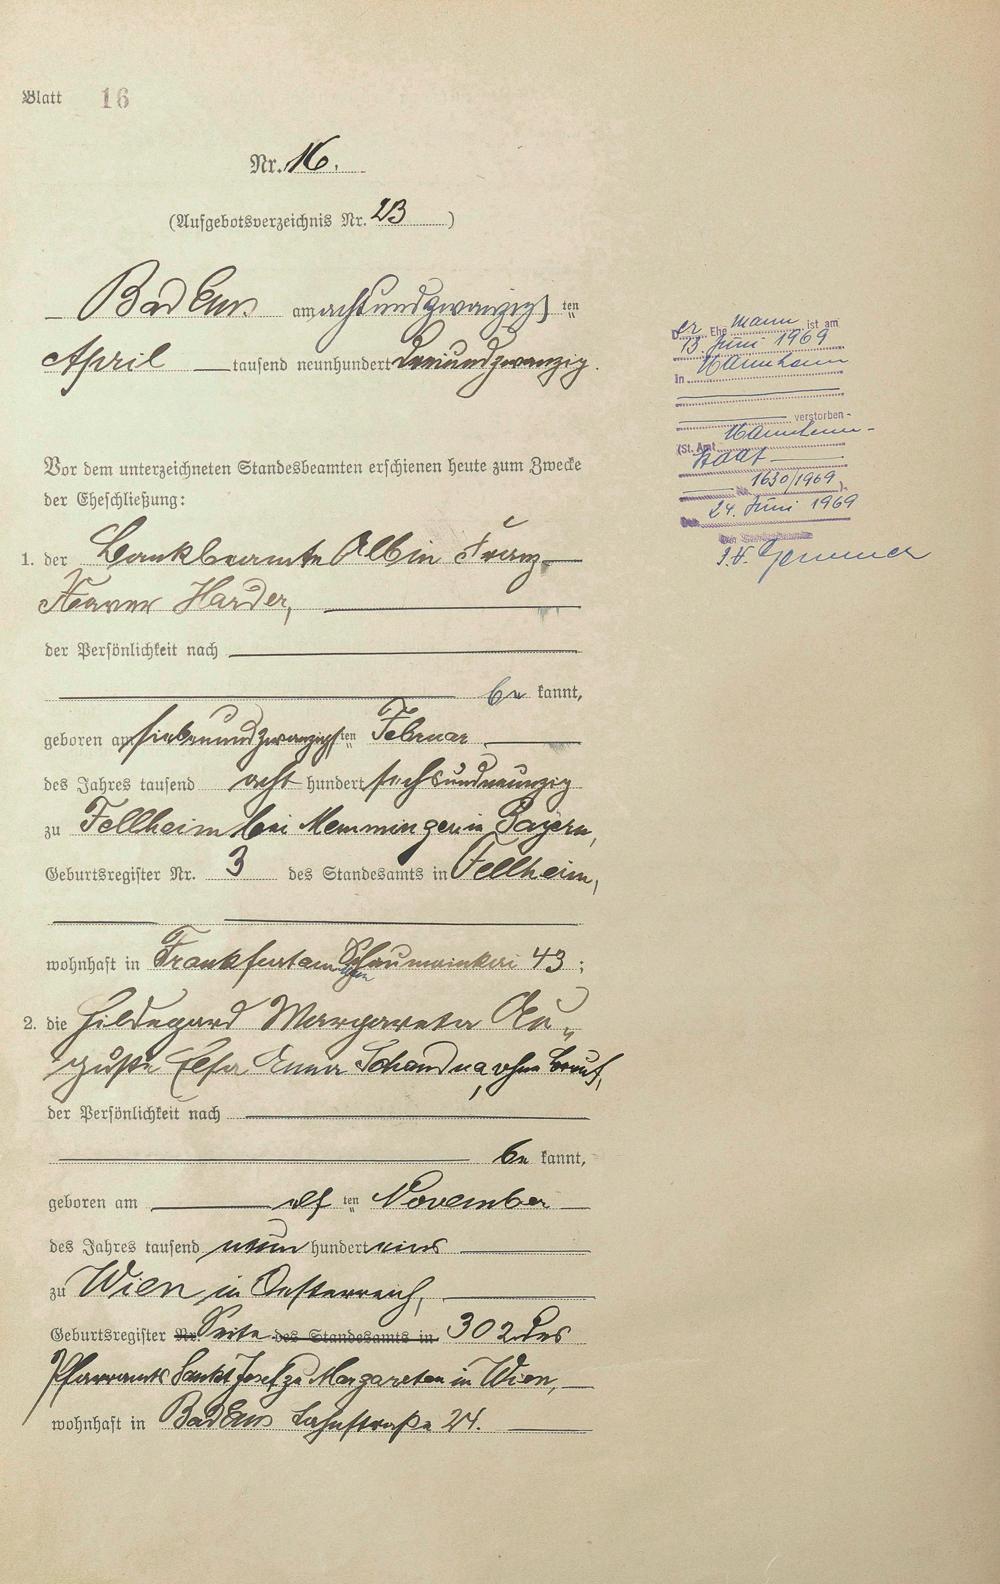 Blatt 16
Nr. 16.
(Aufgebotsverzeichnis Nr. 23)
Bad Ems am achtundzwanzigsten
April tausend neunhundert dreiundzwanzig.
Vor dem unterzeichneten Standesbeamten erschienen heute zum Zwecke
der Eheschließung:
1. der Bankbeamte Albin Franz
Xaver Harder,
der Persönlichkeit nach
be kannt,
geboren am siebenundzwanzigsten Februar
des Jahres tausend acht hundert sechsundneunzig
zu Fellheim bei Memmingen in Bayern,
Geburtsregister Nr. 3 des Standesamts in Fellheim,
wohnhaft in Frankfurt am Schaumainkai 43;
2. die Hildegard Margareta Au-
guste Elsa Anna Schandua, ohne Beruf,
der Persönlichkeit nach
be kannt,
geboren am elf ten November
des Jahres tausend neun hundert eins
zu Wien in Oesterreich,
Geburtsregister Nr. Seite des Standesamts in 302 des
Pfarramts Sankt Josef zu Margareten in Wien,
wohnhaft in Bad Ems Lahnstraße 24.
Der Ehe mann ist am
13. Juni 1969
in Mannheim
verstorben
(St. Amt Mannheim-
Stadt
Nr. 1630/1969).
Den 24. Juni 1969
Der Standesbeamte
I.V.